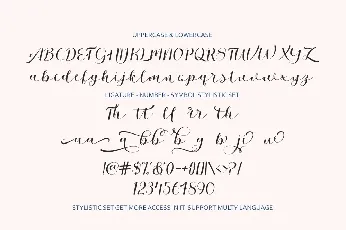 UPPERCASE & LOWERCASE
ABCDEFGHIJKLMNOPQRSTUVWXYZ
abcdefghijklmnopqrstuvwxyz
LIGATURE - NUMBER - SYMBOL STYLISTIC SET
Th tt ff rr th
b y b
!@#$%&()-+{}[]\<>?/
1234567890
STYLISTIC SET GET MORE ACCESS IN IT SUPPORT MULTY LANGUAGE